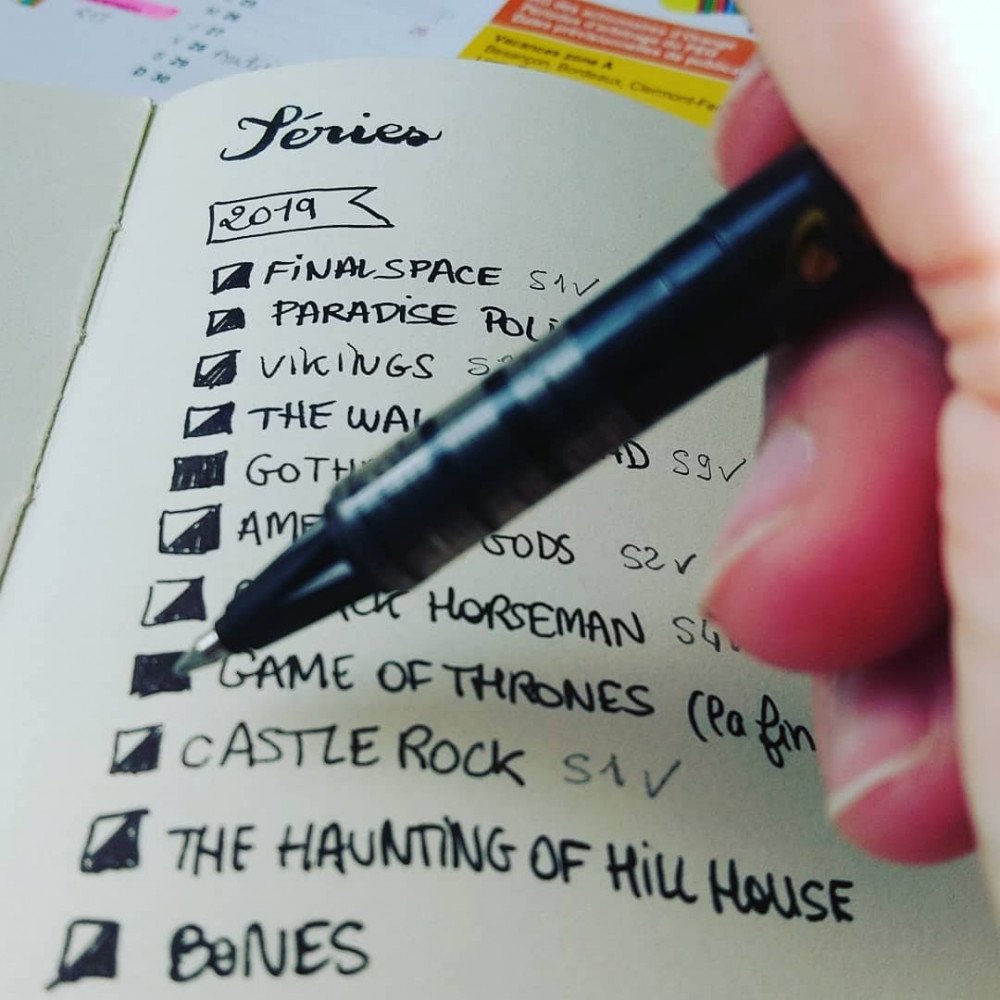 28
29
D 30
Vacances zone A
Besançon, Bordeaux, Clermont-Fe
Séries
2019
FINAL SPACE S1✓
PARADISE POLI
VIKINGS
THE WAL AD S9✓
GOTH
AME GODS S2✓
CK HORSEMAN S4
GAME OF THRONES (la fin
CASTLE ROCK S1✓
THE HAUNTING OF HILL HOUSE
BONES